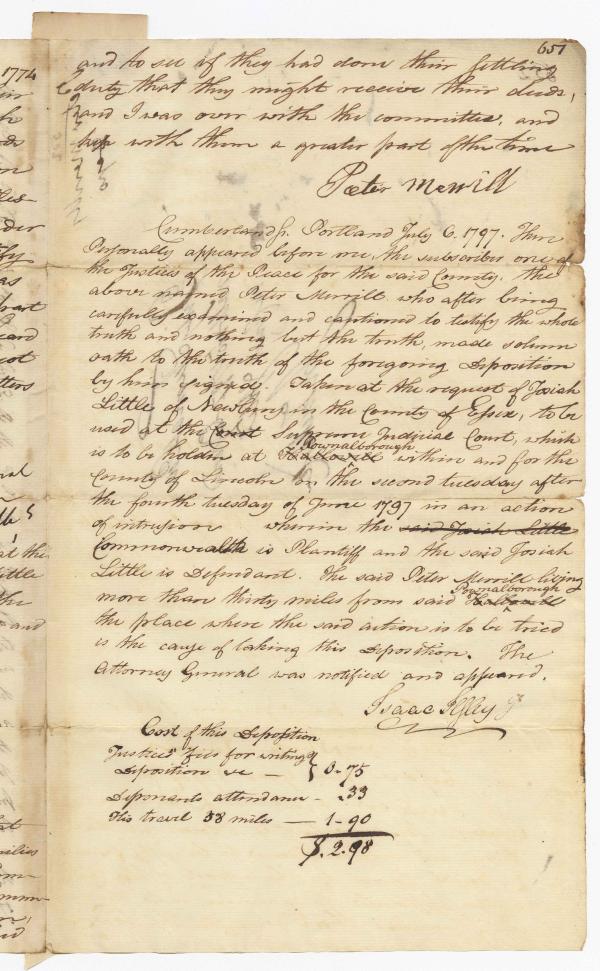 651
and to see if they had done their settling
duty that they might receive their deeds,
and I was over with the committee, and
kep with them a greater part of the time
Peter Merrill
Cumberland ss. Portland July 6. 1797. Then
Personally appeared before me, the subscriber one of
the Justices of the Peace for the said County. the
above named Peter Merrill who after being
carefully examined and cautioned to testify the whole
truth and nothing but the truth, made solumn
oath to the truth of the foregoing Deposition
by him signed. Taken at the request of Josiah
Little of Newbury in the County of Essex, to be
used at the Court Supreme Judicial Court, which
Pownalborough
is to be holden at Hallowell within and for the
County of Lincoln on the second tuesday after
the fourth tuesday of June 1797 in an action
of intrusion wherein the said Josiah Little
Commonwealth is Plantiff and the said Josiah
Little is Defendant. The said Peter Merrill living
Pownalborough
more than thirty miles from said Hallowell
the place where the said action is to be tried
is the cause of taking this Deposition. The
Attorney General was notified and appeared.
Isaac Ilsley Jr
Cost of this Deposition
Justices fees for writing
Deposition &c — } 0.75
Deponents attendance - .33
His travel 38 miles — 1-90
$.2.98
1774